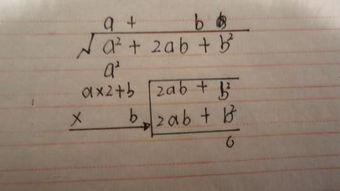 a + b
√a² + 2ab + b²
a²
a×2+b 2ab + b²
× b 2ab + b²
0